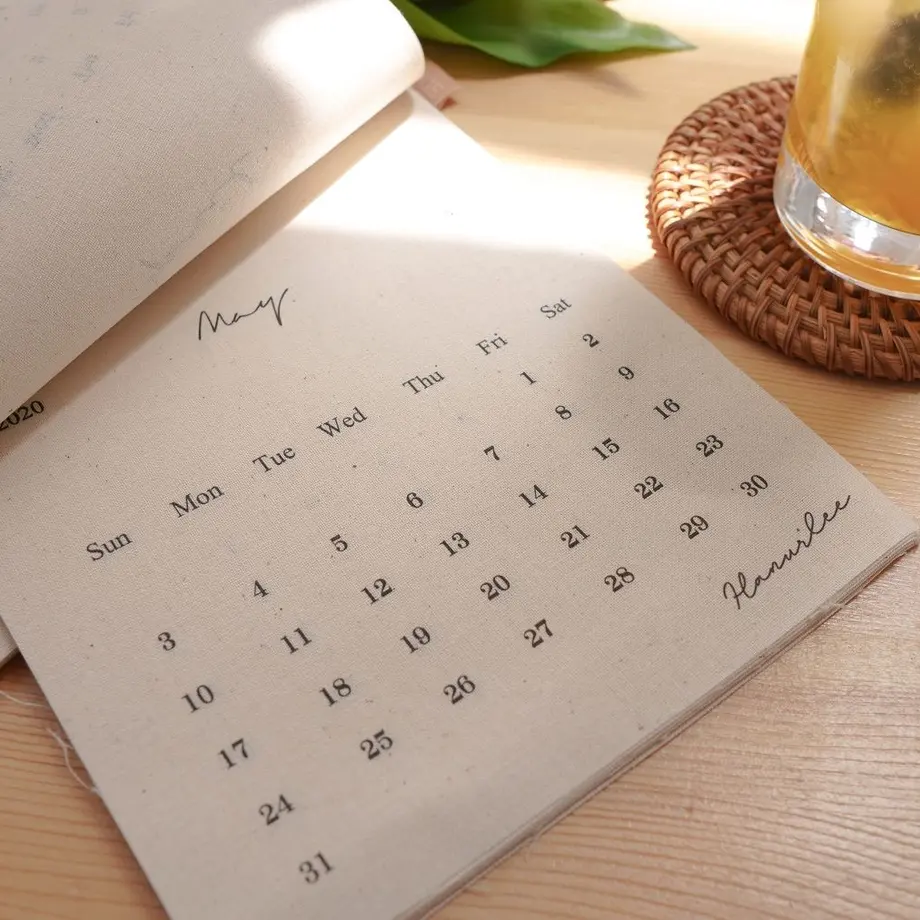 May
2020
Sun Mon Tue Wed Thu Fri Sat
1 2
3 4 5 6 7 8 9
10 11 12 13 14 15 16
17 18 19 20 21 22 23
24 25 26 27 28 29 30
31
Hanurlee